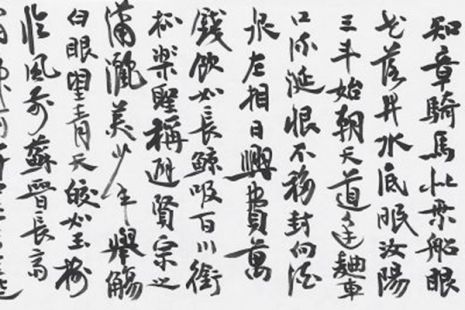 知章騎馬似乘船眼
花落井水底眠汝陽
三斗始朝天道逢麴車
口流涎恨不移封向酒
泉左相日興費萬
錢飲如長鯨吸百川銜
杯樂聖稱避賢宗之
瀟灑美少年舉觴
白眼望青天皎如玉樹
臨風前蘇晉長齋